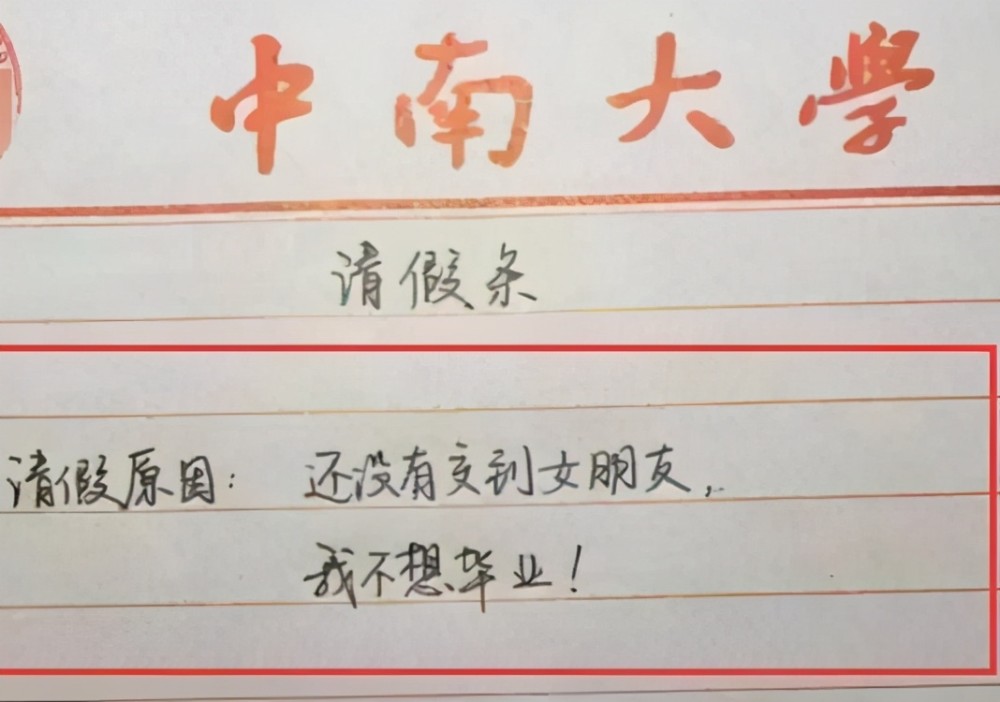 中南大學
请假条
请假原因: 还没有交到女朋友,
我不想毕业!